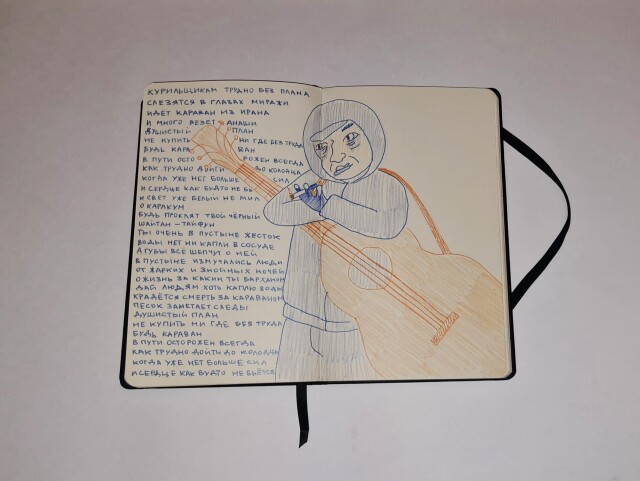 КУРИЛЬЩИКАМ ТРУДНО БЕЗ ПЛАНА
СЛЕЗЯТСЯ В ГЛАЗАХ МИРАЖИ
ИДЕТ КАРАВАН ИЗ ИРАНА
И МНОГО ВЕЗЕТ АНАШИ
ДУШИСТЫЙ ПЛАН
НЕ КУПИТЬ НИ ГДЕ БЕЗ ТРУДА
БУДЬ КАРАВАН
В ПУТИ ОСТОРОЖЕН ВСЕГДА
КАК ТРУДНО ДОЙТИ ДО КОЛОДЦА
КОГДА УЖЕ НЕТ БОЛЬШЕ СИЛ
И СЕРДЦЕ КАК БУДТО НЕ БЬ
И СВЕТ УЖЕ БЕЛЫЙ НЕ МИЛ
О КАРАКУМ
БУДЬ ПРОКЛЯТ ТВОЙ ЧЁРНЫЙ
ШАЙТАН-ТАЙФУН
ТЫ ОЧЕНЬ В ПУСТЫНЕ ЖЕСТОК
ВОДЫ НЕТ НИ КАПЛИ В СОСУДЕ
А ГУБЫ ВСЁ ШЕПЧУТ О НЕЙ
В ПУСТЫНЕ ИЗМУЧАЛИСЬ ЛЮДИ
ОТ ЖАРКИХ И ЗНОЙНЫХ НОЧЕЙ
О ЖИЗНЬ ЗА КАКИМ ТЫ БАРХАНОМ
ДАЙ ЛЮДЯМ ХОТЬ КАПЛЮ ВОДЫ
КРАДЁТСЯ СМЕРТЬ ЗА КАРАВАНОМ
ПЕСОК ЗАМЕТАЕТ СЛЕДЫ
ДУШИСТЫЙ ПЛАН
НЕ КУПИТЬ НИ ГДЕ БЕЗ ТРУДА
БУДЬ КАРАВАН
В ПУТИ ОСТОРОЖЕН ВСЕГДА
КАК ТРУДНО ДОЙТИ ДО КОЛОДЦА
КОГДА УЖЕ НЕТ БОЛЬШЕ СИЛ
И СЕРДЦЕ КАК БУДТО НЕ БЬЁТСЯ